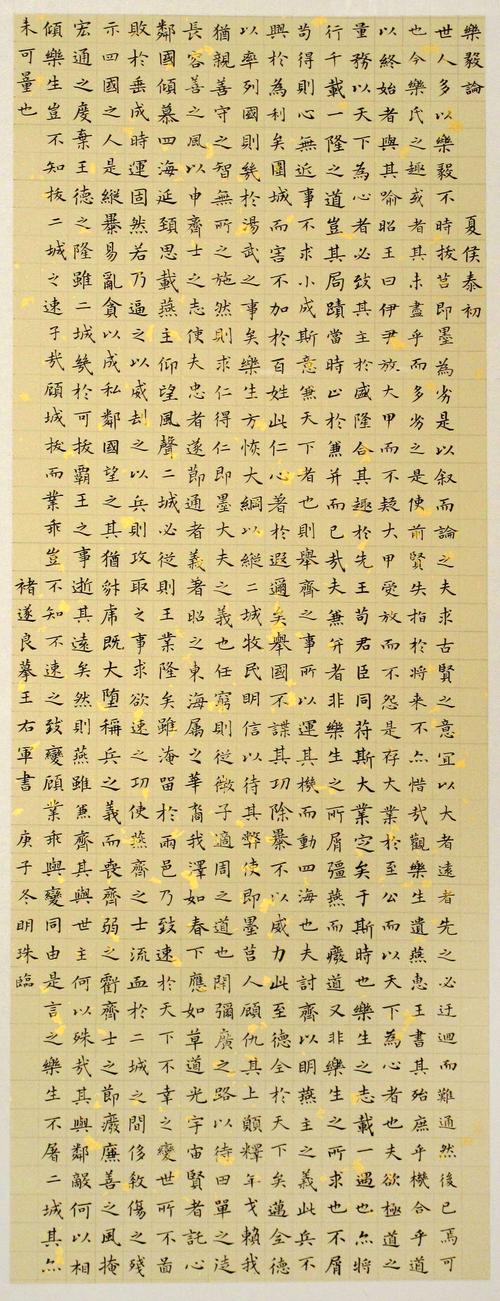 樂毅論 夏侯泰初
世人多以樂毅不時拔莒即墨為劣是以叙而論之夫求古賢之意宜以大者遠者先之必迂迴而難通然後已焉可
也今樂氏之趣或者其未盡乎而多劣之是使前賢失指於將來不亦惜哉觀樂生遺燕惠王書其殆庶乎機合乎道
以終始者與其喻昭王曰伊尹放大甲而不疑大甲受放而不怨是存大業於至公而以天下為心者也夫欲極道之
量務以天下為心者必致其主於盛隆合其趣於先王苟君臣同苻斯大業定矣于斯時也樂生之志載一遇也亦將
行千載一隆之道豈其局蹟當時止於兼并而已哉夫兼并者非樂生之所屑彊燕而廢道又非樂生之所求也不屑
苟得則心無近事不求小成斯意兼天下者也則舉齊之事所以運其機而動四海也夫討齊以明燕主之義此兵不
興於為利矣圍城而害不加於百姓此仁心著於遐邇矣舉國不謀其功除暴不以威力此至德全於天下矣邁全德
以率列國則幾於湯武之事矣樂生方恢大綱以縱二城牧民明信以待其弊使即墨莒人顧仇其上願釋干戈賴我
猶親善守之智無所之施然則求仁得仁即墨大夫之義也任窮則從微子適周之道也開彌廣之路以待田單之徒
長容善之風以申齊士之志使夫忠者遂節通者義著昭之東海属之華裔我澤如春下應如草道光宇宙賢者託心
鄰國傾慕四海延頸思載燕主仰望風聲二城必從則王業隆矣雖淹留於兩邑乃致速於天下不幸之變世所不啚
敗於垂成時運固然若乃逼之以威劫之以兵則攻取之事求欲速之功使燕齊之士流血於二城之間侈敘傷之殘
示四國之人是縱暴易亂貪以成私鄰國望之其猶豺虎既大墮稱兵之義而喪齊弱之虧齊士之節廢廉善之風掩
宏通之度棄王德之隆雖二城幾於可拔霸王之事逝其遠矣然則燕雖兼齊其與世主何以殊哉其與鄰敵何以相
傾樂生豈不知拔二城之速了哉顧城拔而業乖豈不知不速之致變顧業乖與變同由是言之樂生不屠二城其亦
未可量也 褚遂良摹王右軍書 庚子冬明珠臨